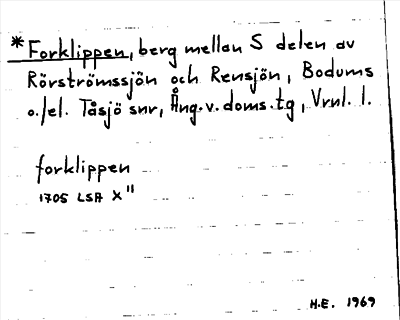 * Forklippen, berg mellan S delen av
Rörströmssjön och Rensjön, Bodums
o./el. Tåsjö snr, Ång.v.doms.tg, Vrnl. l.
forklippen
1705 LSA X"
H.E. 1969